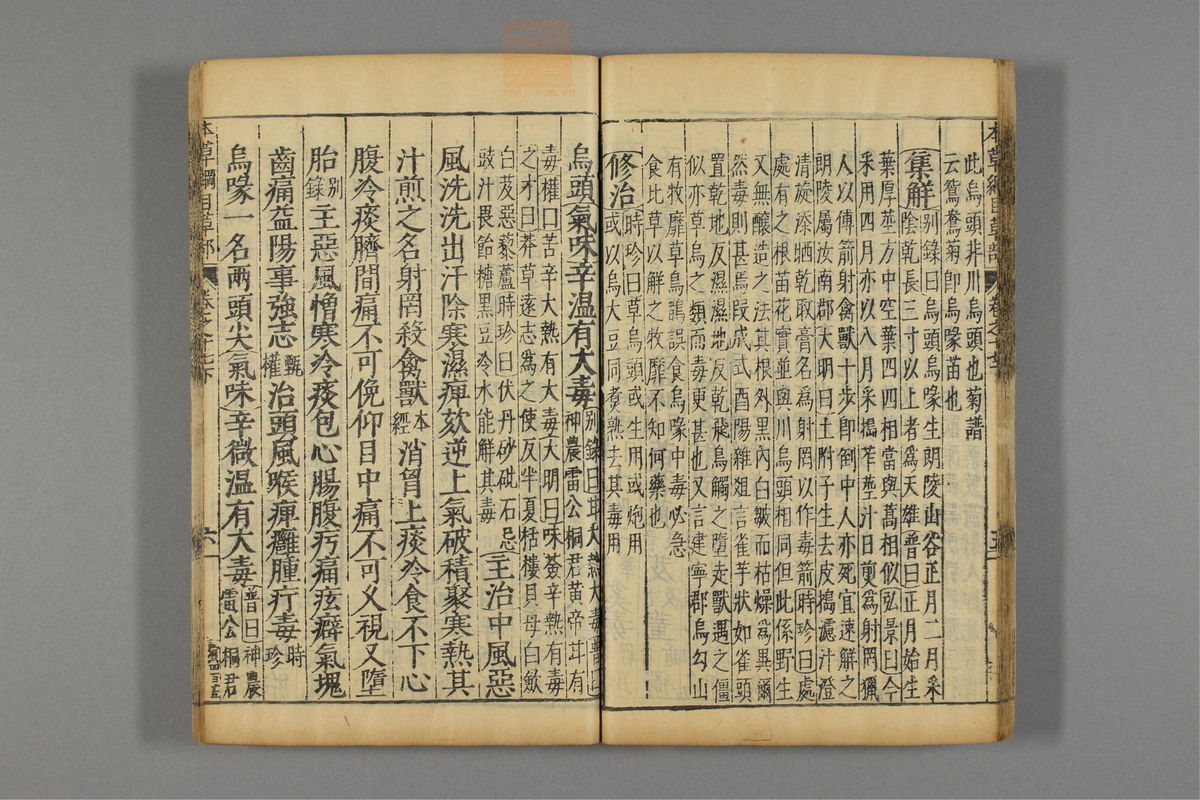 此烏頭非川烏頭也菊譜
云鴛鴦菊卽烏喙苗也
集解別錄曰烏頭烏喙生朗陵山谷正月二月采
陰乾長三寸以上者爲天雄普曰正月始生
葉厚莖方中空葉四四相當與蒿相似弘景曰今
采用四月亦以八月采搗笮莖汁日煎爲射罔獵
人以傅箭射禽獸十步卽倒中人亦死宜速解之
朗陵屬汝南郡大明曰土附子生去皮搗濾汁澄
清旋添晒乾取膏名爲射罔以作毒箭時珍曰處
處有之根苗花實並與川烏頭相同但此係野生
又無釀造之法其根外黑內白皺而枯燥爲異爾
然毒則甚焉段成式酉陽雜俎言雀芋狀如雀頭
置乾地反濕濕地反乾飛鳥觸之墮走獸遇之僵
似亦草烏之類而毒更甚也又言建寧郡烏勾山
有牧靡草鳥鵲誤食烏喙中毒必急
食牧靡以解之牧靡不知何藥也
修治時珍曰草烏頭或生用或炮用
或以烏大豆同煮熟去其毒用
烏頭氣味辛溫有大毒別錄曰甘大熱大毒普曰
神農雷公桐君黃帝甘有
毒權曰苦辛大熱有大毒大明曰味薟辛熱有毒
之才曰莽草遠志爲之使反半夏栝樓貝母白斂
白芨惡藜蘆時珍曰伏丹砂砒石忌
豉汁畏飴糖黑豆冷水能解其毒主治中風惡
風洗洗出汗除寒濕痺欬逆上氣破積聚寒熱其
汁煎之名射罔殺禽獸本經消胷上痰冷食不下心
腹冷痰臍間痛不可俛仰目中痛不可久視又墮
胎別錄主惡風憎寒冷痰包心腸腹㽲痛痃癖氣塊
齒痛益陽事強志甄權治頭風喉痺癰腫疔毒時珍
烏喙一名兩頭尖氣味辛微溫有大毒普曰神農
雷公桐君
本草綱目草部
卷之十七下
六